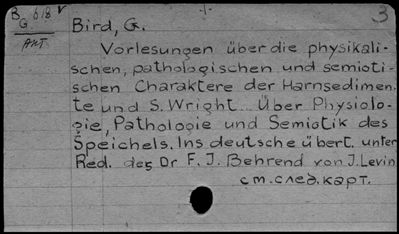 B 618 v
G
Bird, G.
3
Vorlesungen über die physikali-
schen, pathologischen und semioti-
schen Charaktere der Harnsedimen.
te und S. Wright. Über Physiolo-
gie, Pathologie und Semiotik des
Speichels. Ins deutsche übert. unter
Red. des Dr F. J. Behrend von J. Levin
см. след. карт.